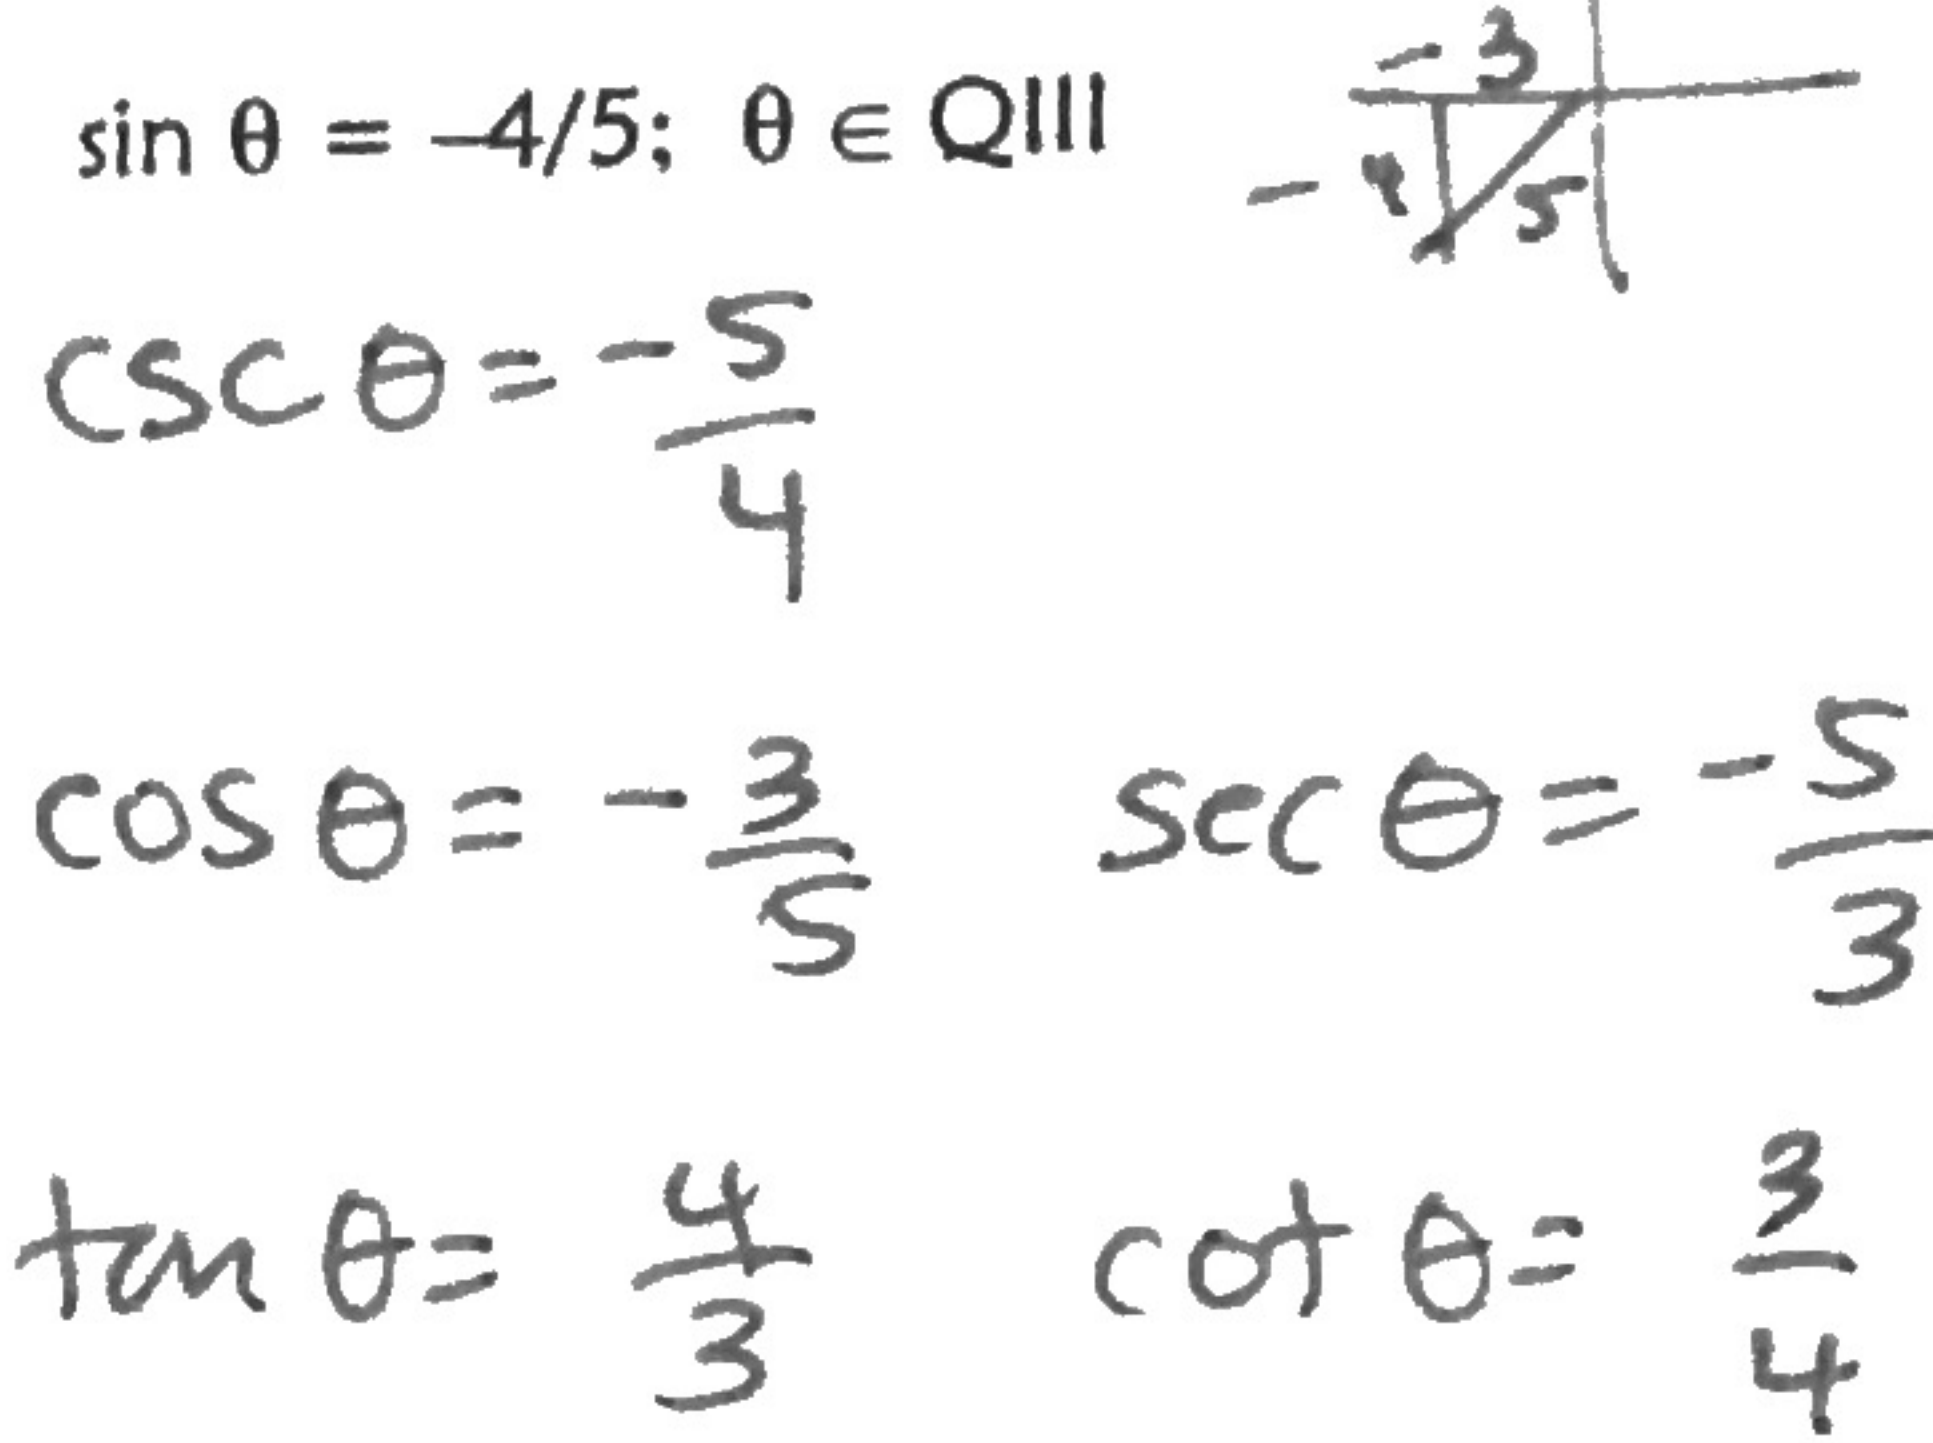 sin θ = –4/5; θ ∈ QIII
- 3
- 4
5
csc θ = - 5/4
cos θ = - 3/5 sec θ = - 5/3
tan θ = 4/3 cot θ = 3/4